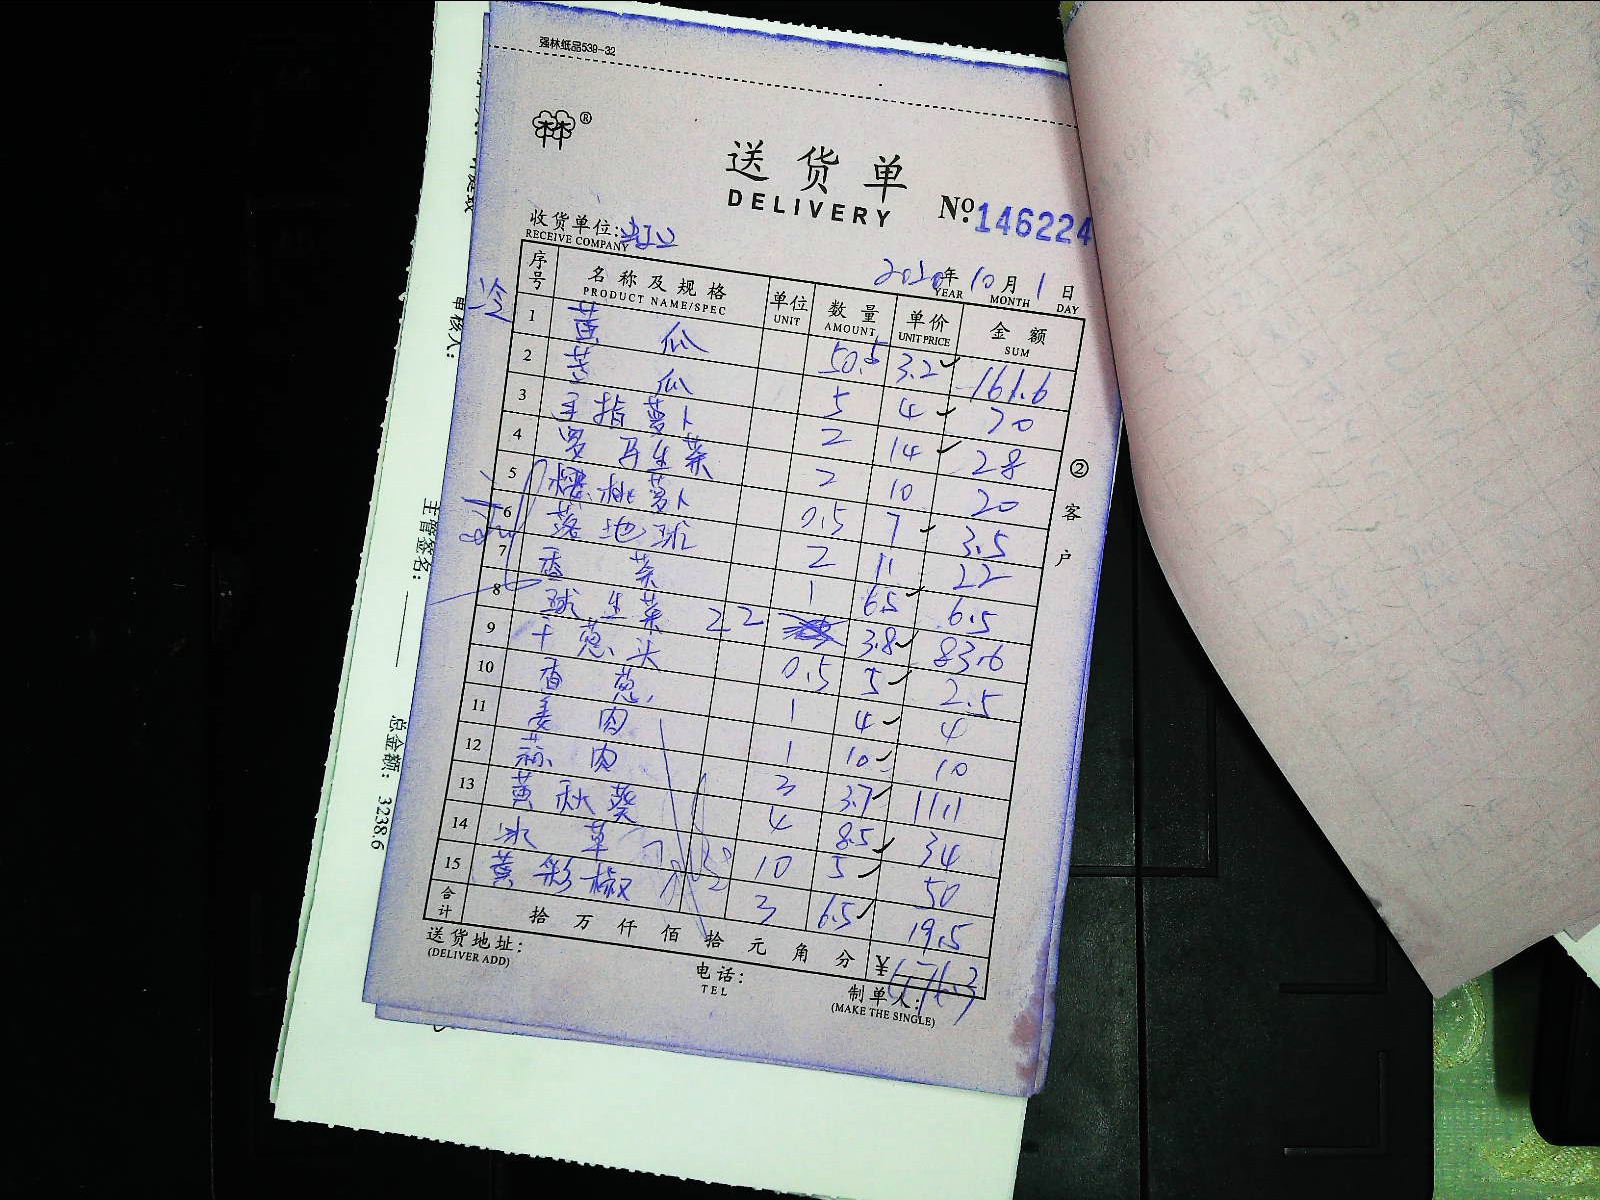 强林纸品538-32
林®
送货单
DELIVERY
No.146224
收货单位:
RECEIVE COMPANY
2020年10月1日
YEAR MONTH DAY
冷
序号 名称及规格 单位 数量 单价 金额
PRODUCT NAME/SPEC UNIT AMOUNT UNIT PRICE SUM
1 黄瓜 50.5 3.2 161.6
2 苦瓜 5 4 20
3 手指萝卜 2 14 28
4 罗马生菜 2 10 20
5 樱桃萝卜 0.5 7 3.5
6 落地球 2 11 22
7 香菜 1 6.5 6.5
8 球生菜 22 3.8 83.6
9 干葱头 0.5 5 2.5
10 香葱 1 4 4
11 姜肉 1 10 10
12 蒜肉 3 3.7 11.1
13 黄秋葵 4 8.5 34
14 冰草 10 5 50
15 黄彩椒 3 6.5 19.5
合计 拾万仟佰拾元角分 ¥476.3
送货地址:
(DELIVER ADD)
电话:
TEL
制单人:
(MAKE THE SINGLE)
②客户
审核人:
主管签名:
总金额: 3238.6